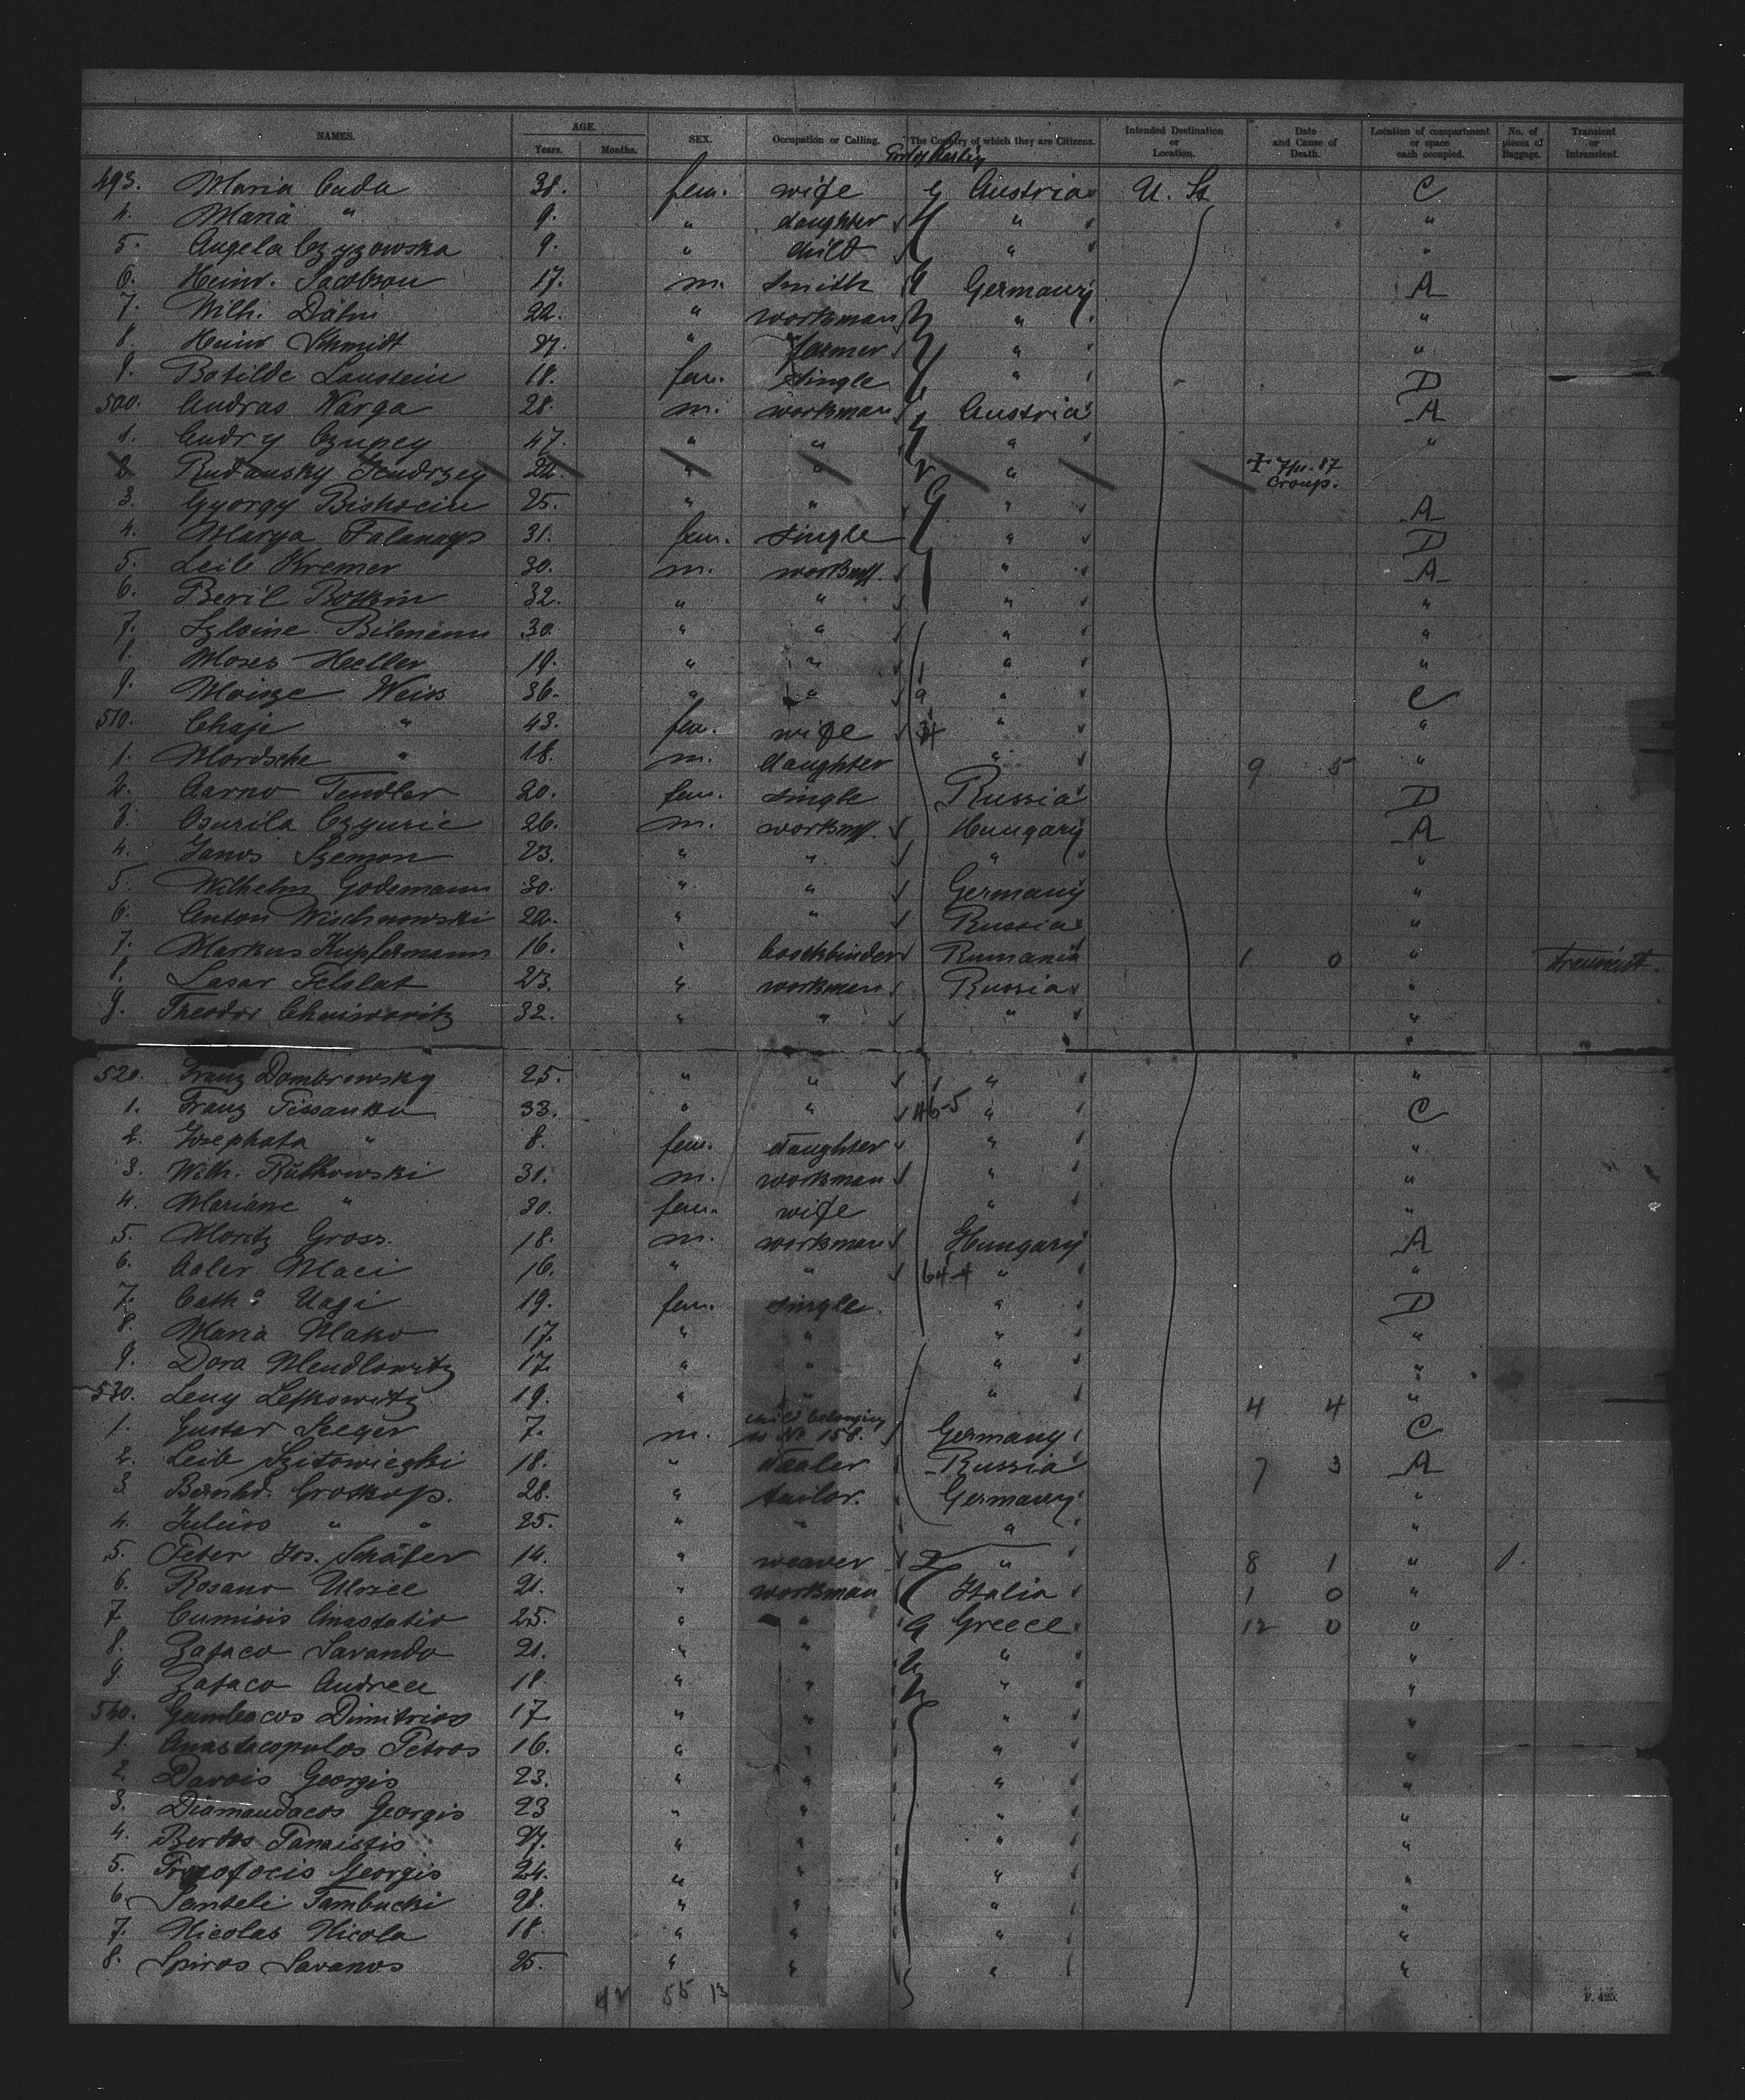 NAMES. AGE. Years. Months. SEX. Occupation or Calling. The Country of which they are Citizens. Intended Destination or Location. Date and Cause of Death. Location of compartment or space each occupied. No. of pieces of Baggage. Transient or Intransient.
493. Maria Cuda 38. fem. wife Austria U. St C
4. Maria " 9. " daughter " "
5. Angela Czyzowska 9. " child " "
6. Heinr. Jacobson 17. m. smith Germany A
7. Wilh. Dähn 22. " workman " "
8. Heinr Schmidt 27. " farmer " "
9. Botilde Laustein 18. fem. single " D
500. Andras Warga 28. m. workman Austria A
1. Andry Czupey 47. " " " "
2. Rudansky Jendrzey 22. " " " † 7/11.87 Croup.
3. Gyorgy 25. " " " A
4. Marya 31. fem. single " D
5. Leib Kremer 30. m. workm. " A
6. Beril Botkin 32. " " " "
7. Bilmann 30. " " " "
8. Moses Heller 19. " " " "
9. Moisze Weiss 36. " " " C
510. Chaje " 43. fem. wife " "
1. Mordsche " 18. m. daughter " 9 5 "
2. Aarno Tendler 20. fem. single Russia D
3. 26. m. workm. Hungary A
4. Janos Szemon 23. " " " "
5. Wilhelm Godemann 30. " " Germany "
6. Anton Wischnowski 22. " " Russia "
7. Markus Kupfermann 16. " bookbinder Rumania 1 0 " transient.
8. Lasar Felslat 23. " workman Russia "
9. Theodor 32. " " " "
520. Franz Dombrowsky 25. " " " "
1. Franz Tissanka 33. " " " C
2. Josephata " 8. fem. daughter " "
3. Wilh. Rutkowski 31. m. workman " "
4. Mariane " 30. fem. wife " "
5. Moritz Gross. 18. m. workman Hungary A
6. Maci 16. " " " "
7. Cath.a 19. fem. single. " D
8. Maria Mako 17. " " " "
9. Dora Mendlowitz 17. " " " "
530. Leny Lefkowitz 19. " " " 4 4 "
1. Gustav Seeger 7. m. child belonging to No 158. Germany C
2. Leib 18. " dealer Russia 7 3 A
3. Bernhd. Groskop. 28. " tailor. Germany "
4. Julius " " 25. " " " "
5. Peter Jos. Schäfer 14. " weaver " 8 1 " 1.
6. Rosano 21. " workman Italia 1 0 "
7. Cumisis Anastatio 25. " " Greece 12 0 "
8. Zataco Savando 21. " " " "
9. Zataco Andrea 18. " " " "
540. Gumbacos Dimitrios 17. " " " "
1. Anastacopulos Petros 16. " " " "
2. Davois Georgis 23. " " " "
3. Diamandacos Georgis 23 " " " "
4. Bertos 27. " " " "
5. Georgis 24. " " " "
6. Panteli Tambucki 28. " " " "
7. Nicolas Nicola 18. " " " "
8. Spiros Savanos 25. " " " "
42 55 13
F. 425.